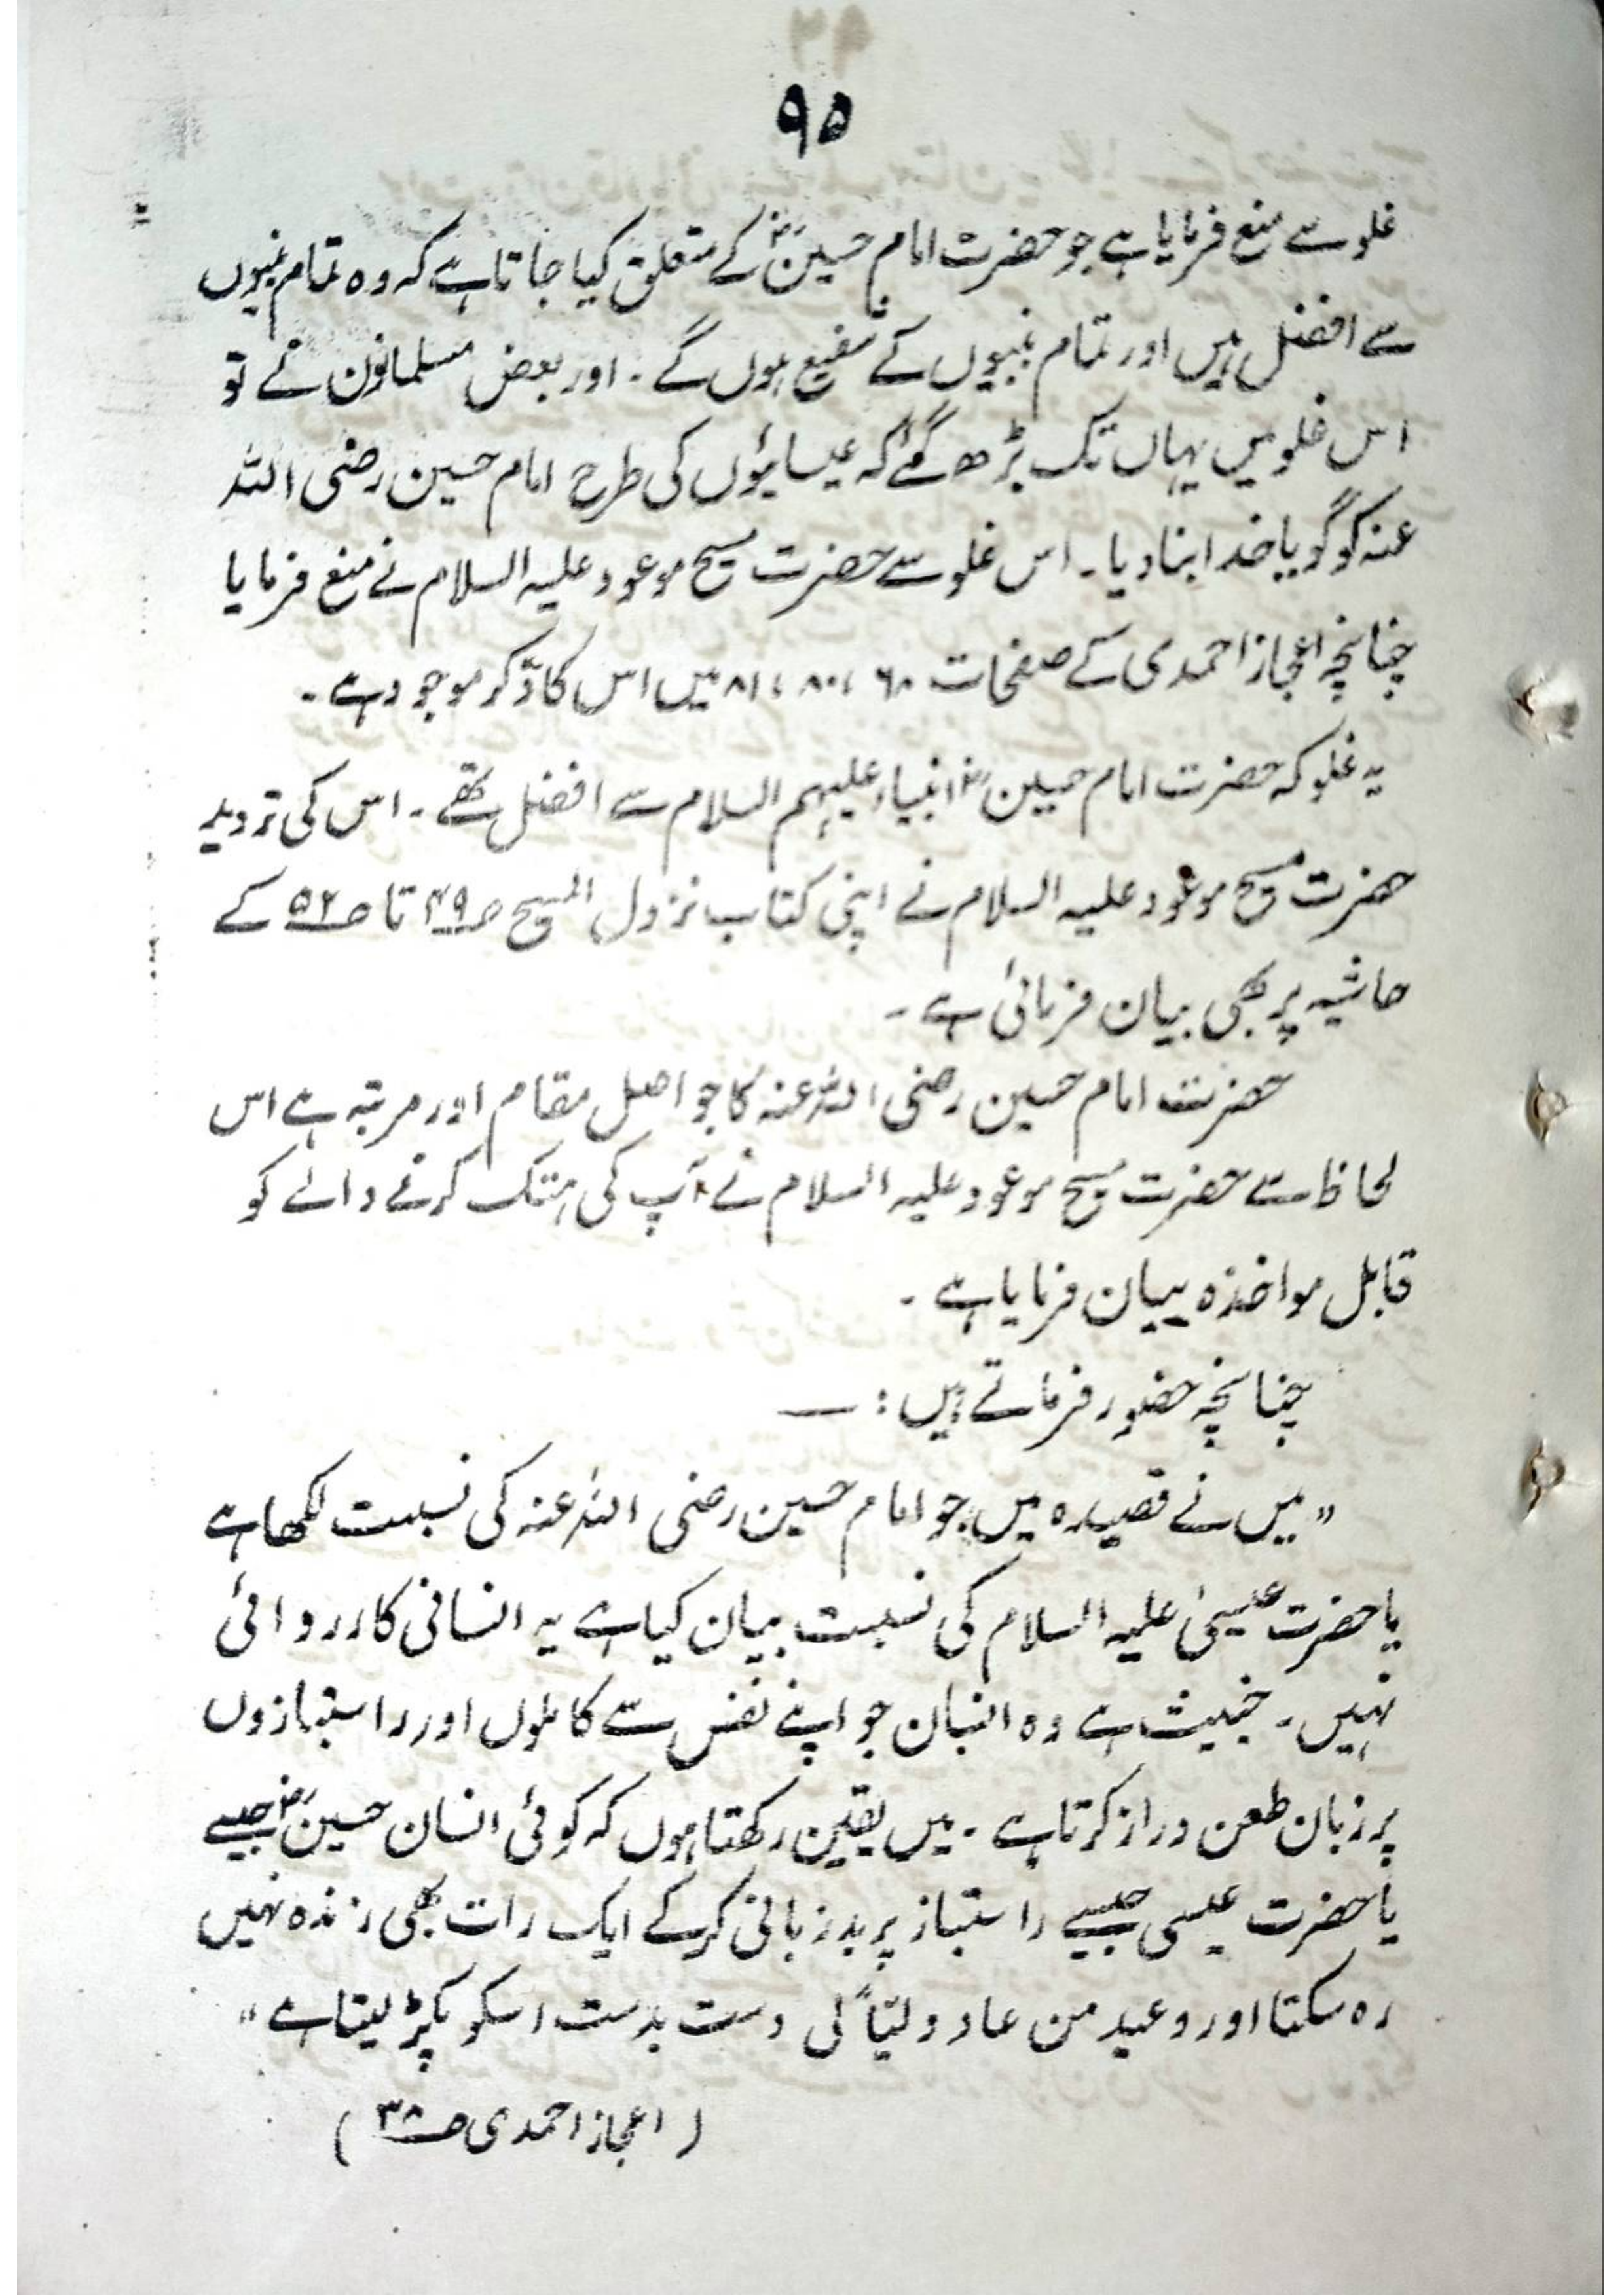 ۹۵
غلو سے منع فرمایا ہے جو حضرت امام حسینؓ کے متعلق کیا جاتا ہے کہ وہ تمام نبیوں
سے افضل ہیں اور تمام نبیوں کے شفیع ہوں گے ۔ اور بعض مسلمانوں نے تو
اس غلو میں یہاں تک بڑھ گئے کہ عیسائیوں کی طرح امام حسین رضی اللہ
عنہ کو گویا خدا بنا دیا ۔ اس غلو سے حضرت مسیح موعود علیہ السلام نے منع فرمایا
چنانچہ اعجاز احمدی کے صفحات ۶۸، ۸۰، ۸۱ میں اس کا ذکر موجود ہے ۔
یہ غلو کہ حضرت امام حسینؓ انبیاء علیہم السلام سے افضل تھے ۔ اس کی تردید
حضرت مسیح موعود علیہ السلام نے اپنی کتاب نزول المسیح ص۴۹ تا ص۵۲ کے
حاشیہ پر بھی بیان فرمائی ہے ۔
حضرت امام حسین رضی اللہ عنہ کا جو اصل مقام اور مرتبہ ہے اس
لحاظ سے حضرت مسیح موعود علیہ السلام نے آپ کی ہتک کرنے والے کو
قابل مواخذہ بیان فرمایا ہے ۔
چنانچہ حضور فرماتے ہیں : —
" میں نے قصیدہ میں جو امام حسین رضی اللہ عنہ کی نسبت لکھا ہے
یا حضرت عیسیٰ علیہ السلام کی نسبت بیان کیا ہے یہ انسانی کارروائی
نہیں ۔ خبیث ہے وہ انسان جو اپنے نفس سے کاملوں اور راستبازوں
پر زبان طعن دراز کرتا ہے ۔ میں یقین رکھتا ہوں کہ کوئی انسان حسینؓ جیسے
یا حضرت عیسی جیسے راستباز پر بدزبانی کرکے ایک رات بھی زندہ نہیں
رہ سکتا اور وعید من عاد ولیّاً لی دست بدست اسکو پکڑ لیتا ہے "
( اعجاز احمدی ص۳۸ )